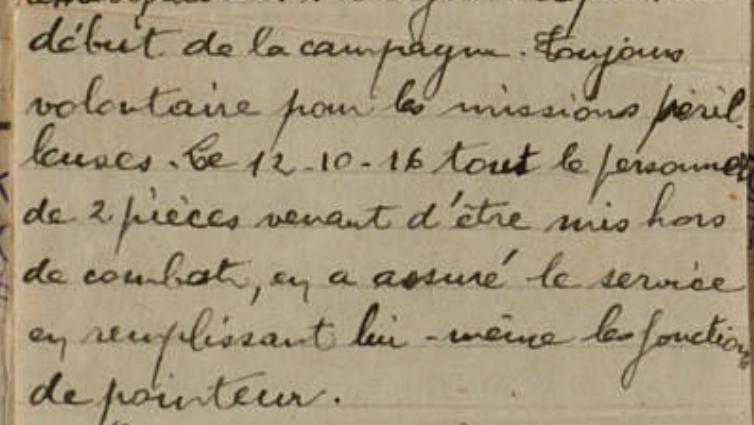 début de la campagne. Toujours
volontaire pour les missions péril-
leuses. Le 12-10-16 tout le personnel
de 2 pièces venant d'être mis hors
de combat, en a assuré le service
en remplissant lui-même les fonctions
de pointeur.